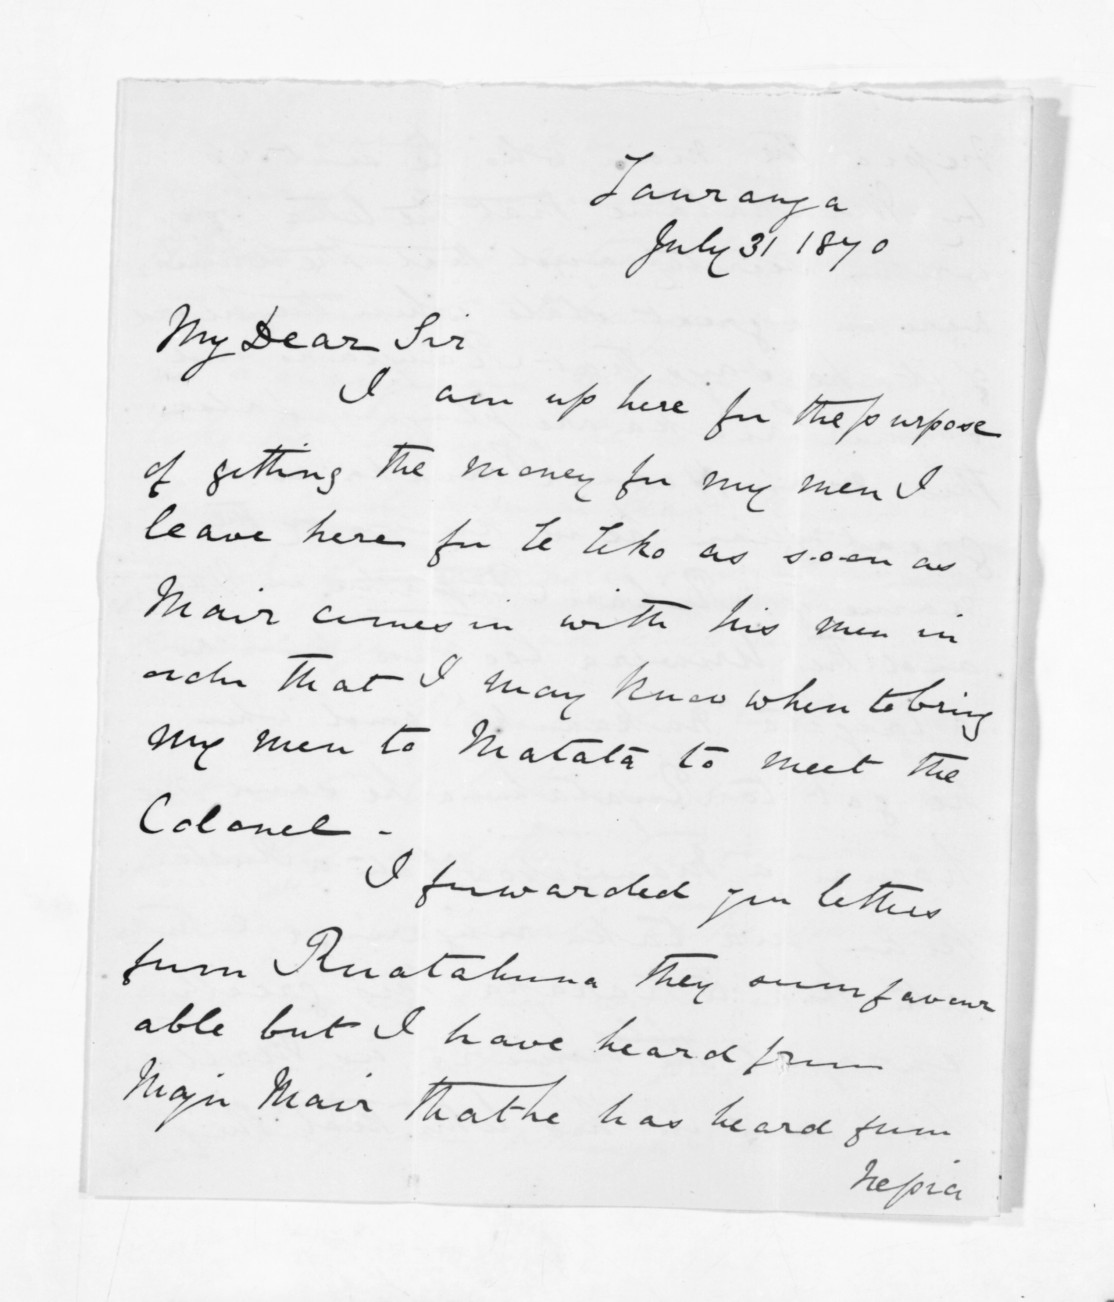 Tauranga
July 31 1870
My Dear Sir
I am up here for the purpose
of getting the money for my men I
leave here for Te Teko as soon as
Mair comes in with his men in
order that I may know when to bring
my men to Matata to meet the
Colonel -
I forwarded you letters
from Ruatahuna they seem favour
able but I have heard from
Major Mair that he has heard from
Nepia